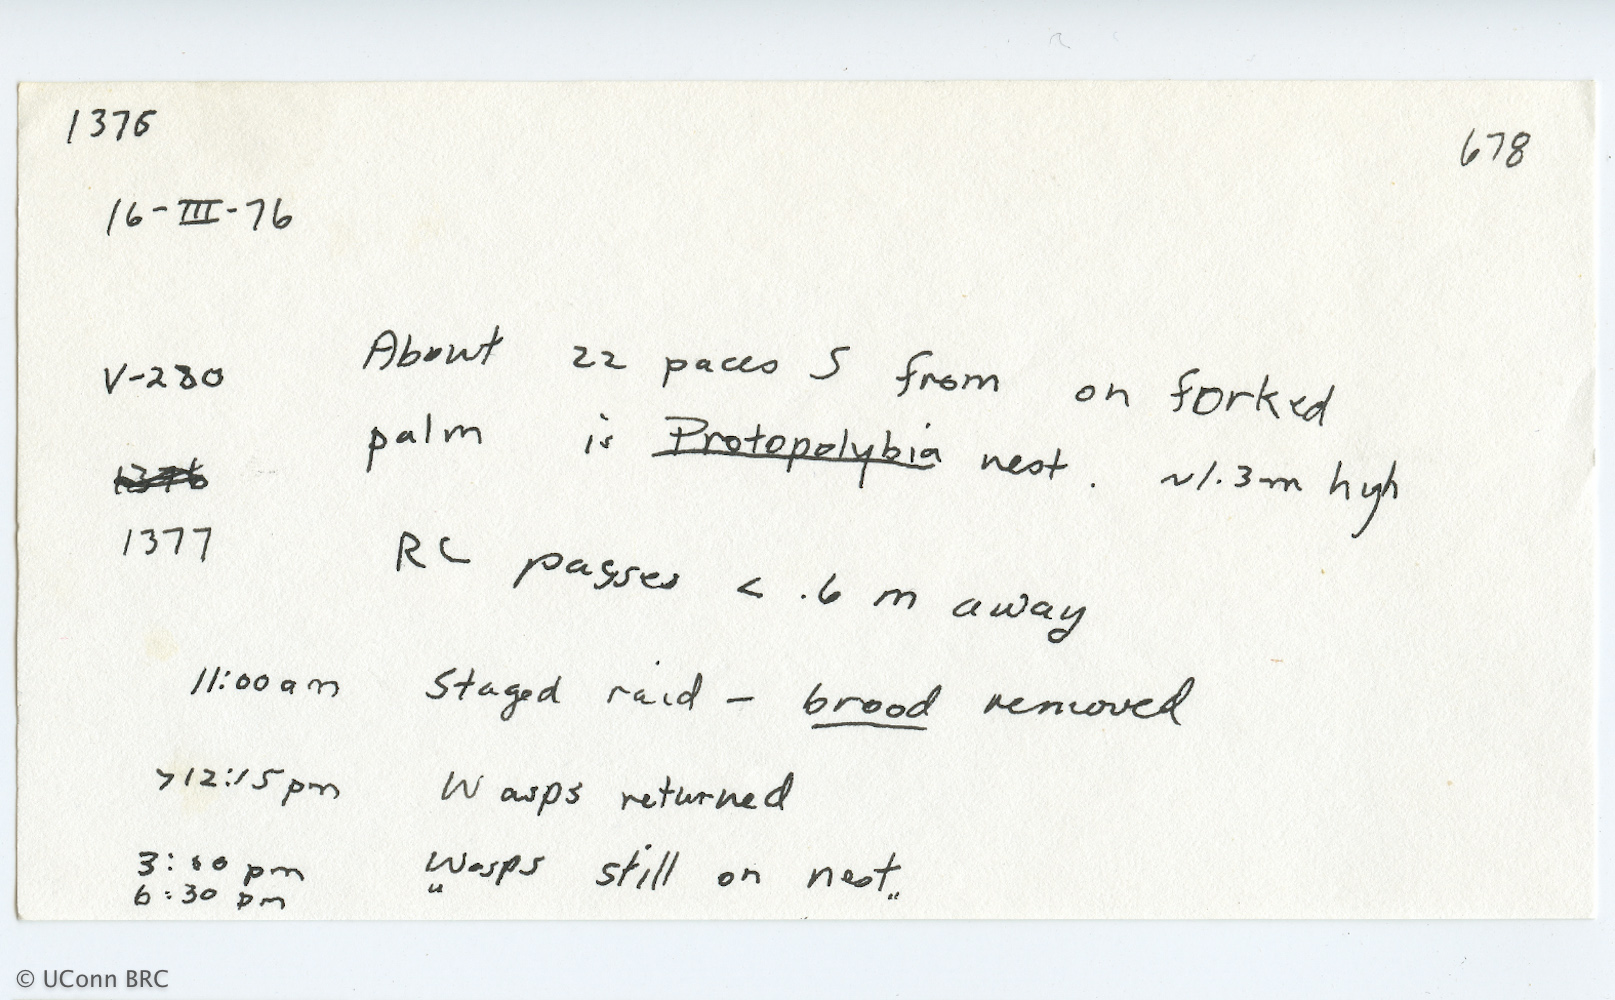 1376
678
16-III-76
V-280 About 22 paces S from on forked
palm is Protopolybia nest. ~1.3m high
1376
1377 RC passes < .6 m away
11:00am Staged raid - brood removed
>12:15pm Wasps returned
3:00 pm Wasps still on nest
6:30 pm " "
© UConn BRC